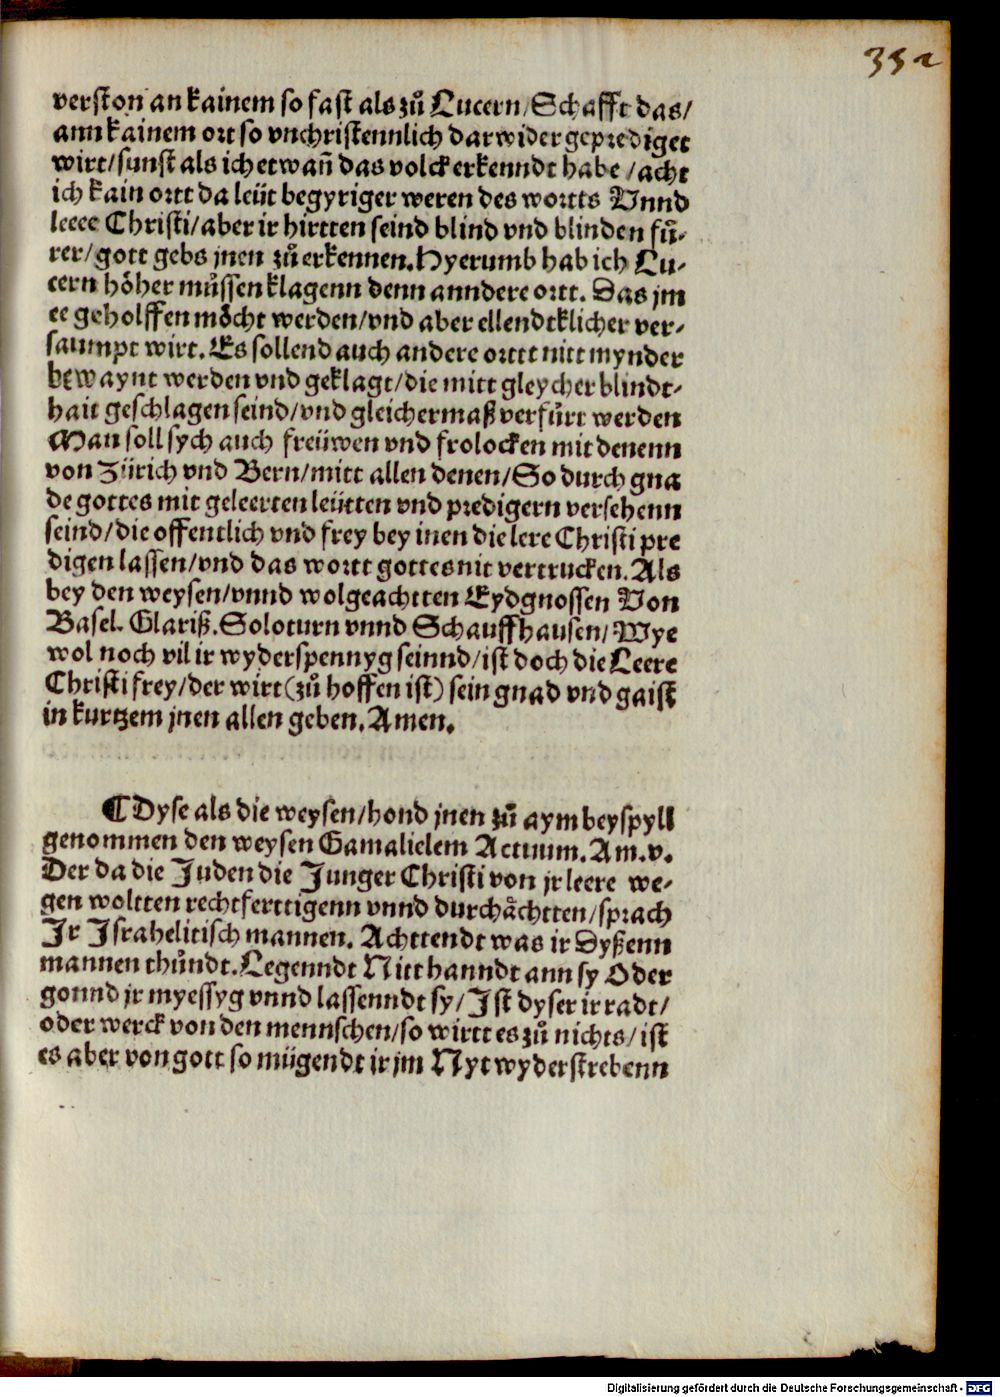 352
verston an kainem so fast als zů Lucern/Schafft das/
ann kainem ort so vnchristennlich darwider geprediget
wirt/sunst als ich etwañ das volck erkenndt habe /acht
ich kain ortt da leüt begyriger weren des wortts Vnnd
leeee Christi/aber ir hirtten seind blind vnd blinden fů-
rer/gott gebs jnen zů erkennen. Hyerumb hab ich Lu-
cern höher můssen klagenn denn anndere ortt. Das jm
ee geholffen möcht werden/vnd aber ellendtklicher ver-
saumpt wirt. Es sollend auch andere orttt nitt mynder
bewaynt werden vnd geklagt/die mitt gleycher blindt-
hait geschlagen seind/vnd gleichermaß verfůrt werden
Man soll sych auch freüwen vnd frolocken mit denenn
von Zürich vnd Bern/mitt allen denen/So durch gna
de gottes mit geleerten leütten vnd predigern versehenn
seind/die offentlich vnd frey bey inen die lere Christi pre
digen lassen/vnd das wortt gottes nit vertrucken. Als
bey den weysen/vnnd wolgeachtten Eydgnossen Von
Basel. Glariß. Soloturn vnnd Schauffhausen/Wye
wol noch vil ir wyderspennyg seinnd/ist doch die Leere
Christi frey/der wirt (zů hoffen ist) sein gnad vnd gaist
in kurtzem jnen allen geben. Amen.
¶ Dyse als die weysen/hond jnen zů aym beyspyll
genommen den weysen Gamalielem Actuum. Am. v.
Der da die Juden die Junger Christi von jr leere we-
gen woltten rechtferttigenn vnnd durchåchtten/sprach
Ir Israhelitisch mannen. Achttendt was ir Dyßenn
mannen thůndt. Legenndt Nitt hanndt ann sy Oder
gonnd jr myessyg vnnd lassenndt sy/Ist dyser ir radt/
oder werck von den mennschen/so wirtt es zů nichts/ist
es aber von gott so mügendt ir jm Nyt wyderstrebenn
Digitalisierung gefördert durch die Deutsche Forschungsgemeinschaft - DFG